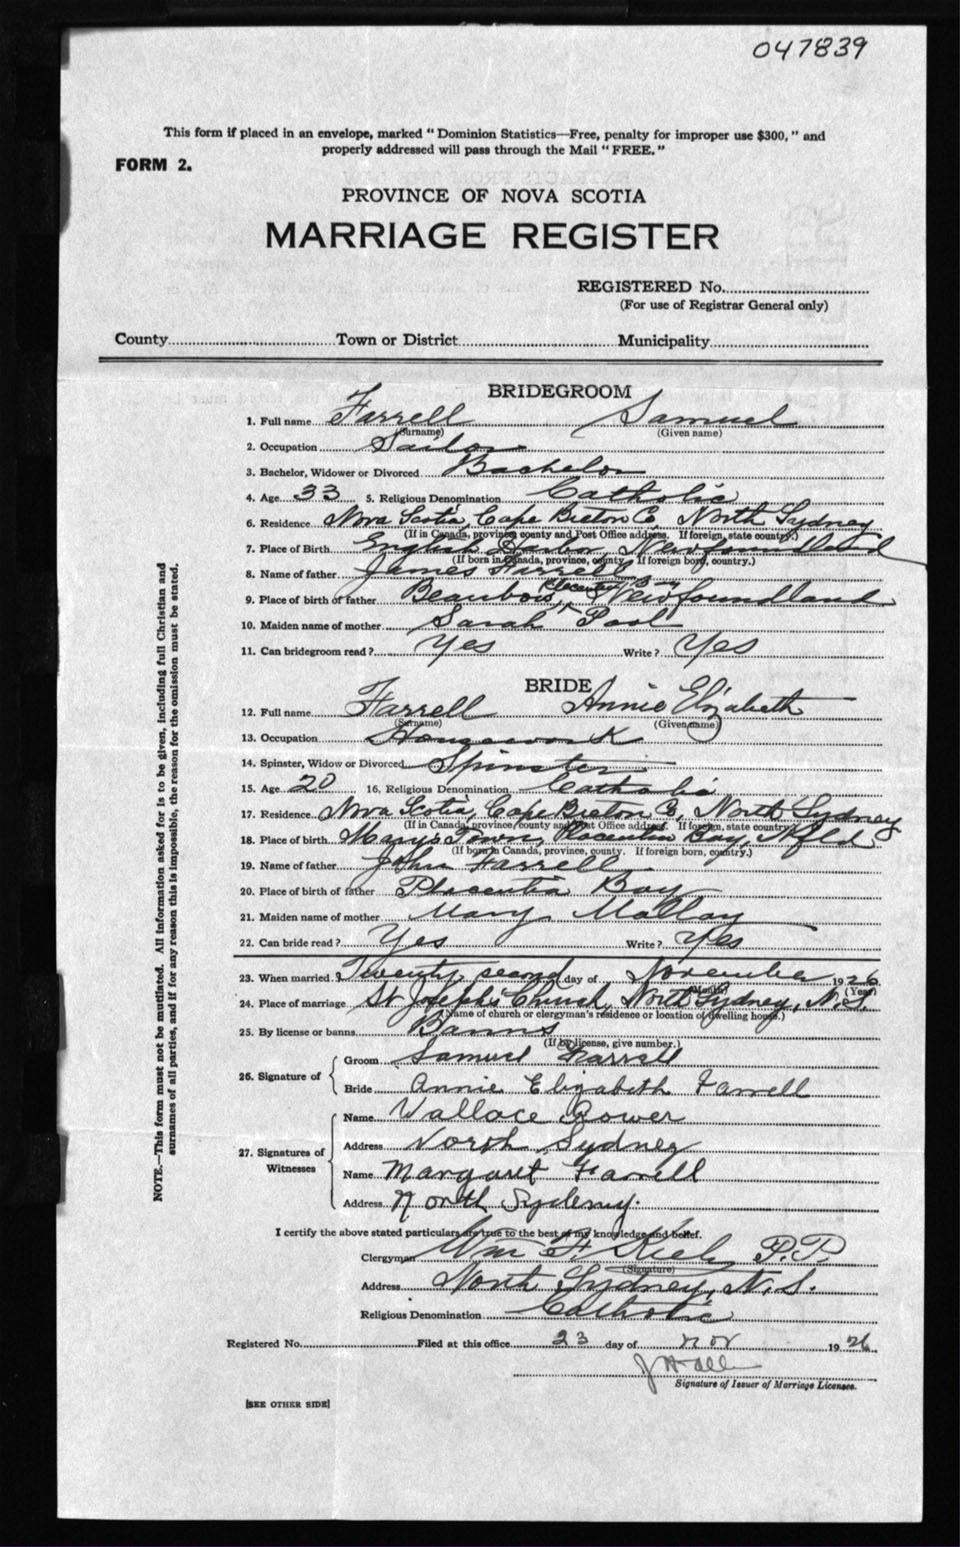 047839
This form if placed in an envelope, marked "Dominion Statistics—Free, penalty for improper use $300," and
properly addressed will pass through the Mail "FREE."
FORM 2.
PROVINCE OF NOVA SCOTIA
MARRIAGE REGISTER
REGISTERED No.
(For use of Registrar General only)
County Town or District Municipality
BRIDEGROOM
1. Full name Farrell Samuel
(Surname) (Given name)
2. Occupation Sailor
3. Bachelor, Widower or Divorced Bachelor
4. Age 33 5. Religious Denomination Catholic
6. Residence Nova Scotia, Cape Breton Co, North Sydney
(If in Canada, province, county and Post Office address. If foreign, state country.)
7. Place of Birth English Harbor, Newfoundland
(If born in Canada, province, county. If foreign born, country.)
8. Name of father James Farrell
9. Place of birth of father Beaubois, Placentia Bay Newfoundland
10. Maiden name of mother Sarah
11. Can bridegroom read? Yes Write? Yes
BRIDE
12. Full name Farrell Annie Elizabeth
(Surname) (Given name)
13. Occupation Housework
14. Spinster, Widow or Divorced Spinster
15. Age 20 16. Religious Denomination Catholic
17. Residence Nova Scotia, Cape Breton Co, North Sydney
(If in Canada, province, county and Post Office address. If foreign, state country.)
18. Place of birth Marys Town, Placentia Bay, Nfld
(If born in Canada, province, county. If foreign born, country.)
19. Name of father John Farrell
20. Place of birth of father Placentia Bay
21. Maiden name of mother Mary Mallay
22. Can bride read? Yes Write? Yes
23. When married Twenty second day of November 1926
(Month) (Year)
24. Place of marriage St Joseph's Church, North Sydney, N.S.
(Name of church or clergyman's residence or location of dwelling house.)
25. By license or banns Banns
(If by license, give number.)
26. Signature of Groom Samuel Farrell
Bride Annie Elizabeth Farrell
27. Signatures of Witnesses Name Wallace Power
Address North Sydney
Name Margaret Farrell
Address North Sydeny.
I certify the above stated particulars are true to the best of my knowledge and belief.
Clergyman Wm F. Kiely P.P.
(Signature)
Address North Sydney, N.S.
Religious Denomination Catholic
Registered No. Filed at this office 23 day of Nov 1926
Signature of Issuer of Marriage Licenses.
[SEE OTHER SIDE]
NOTE.—This form must not be mutilated. All information asked for is to be given, including full Christian and
surnames of all parties, and if for any reason this is impossible, the reason for the omission must be stated.